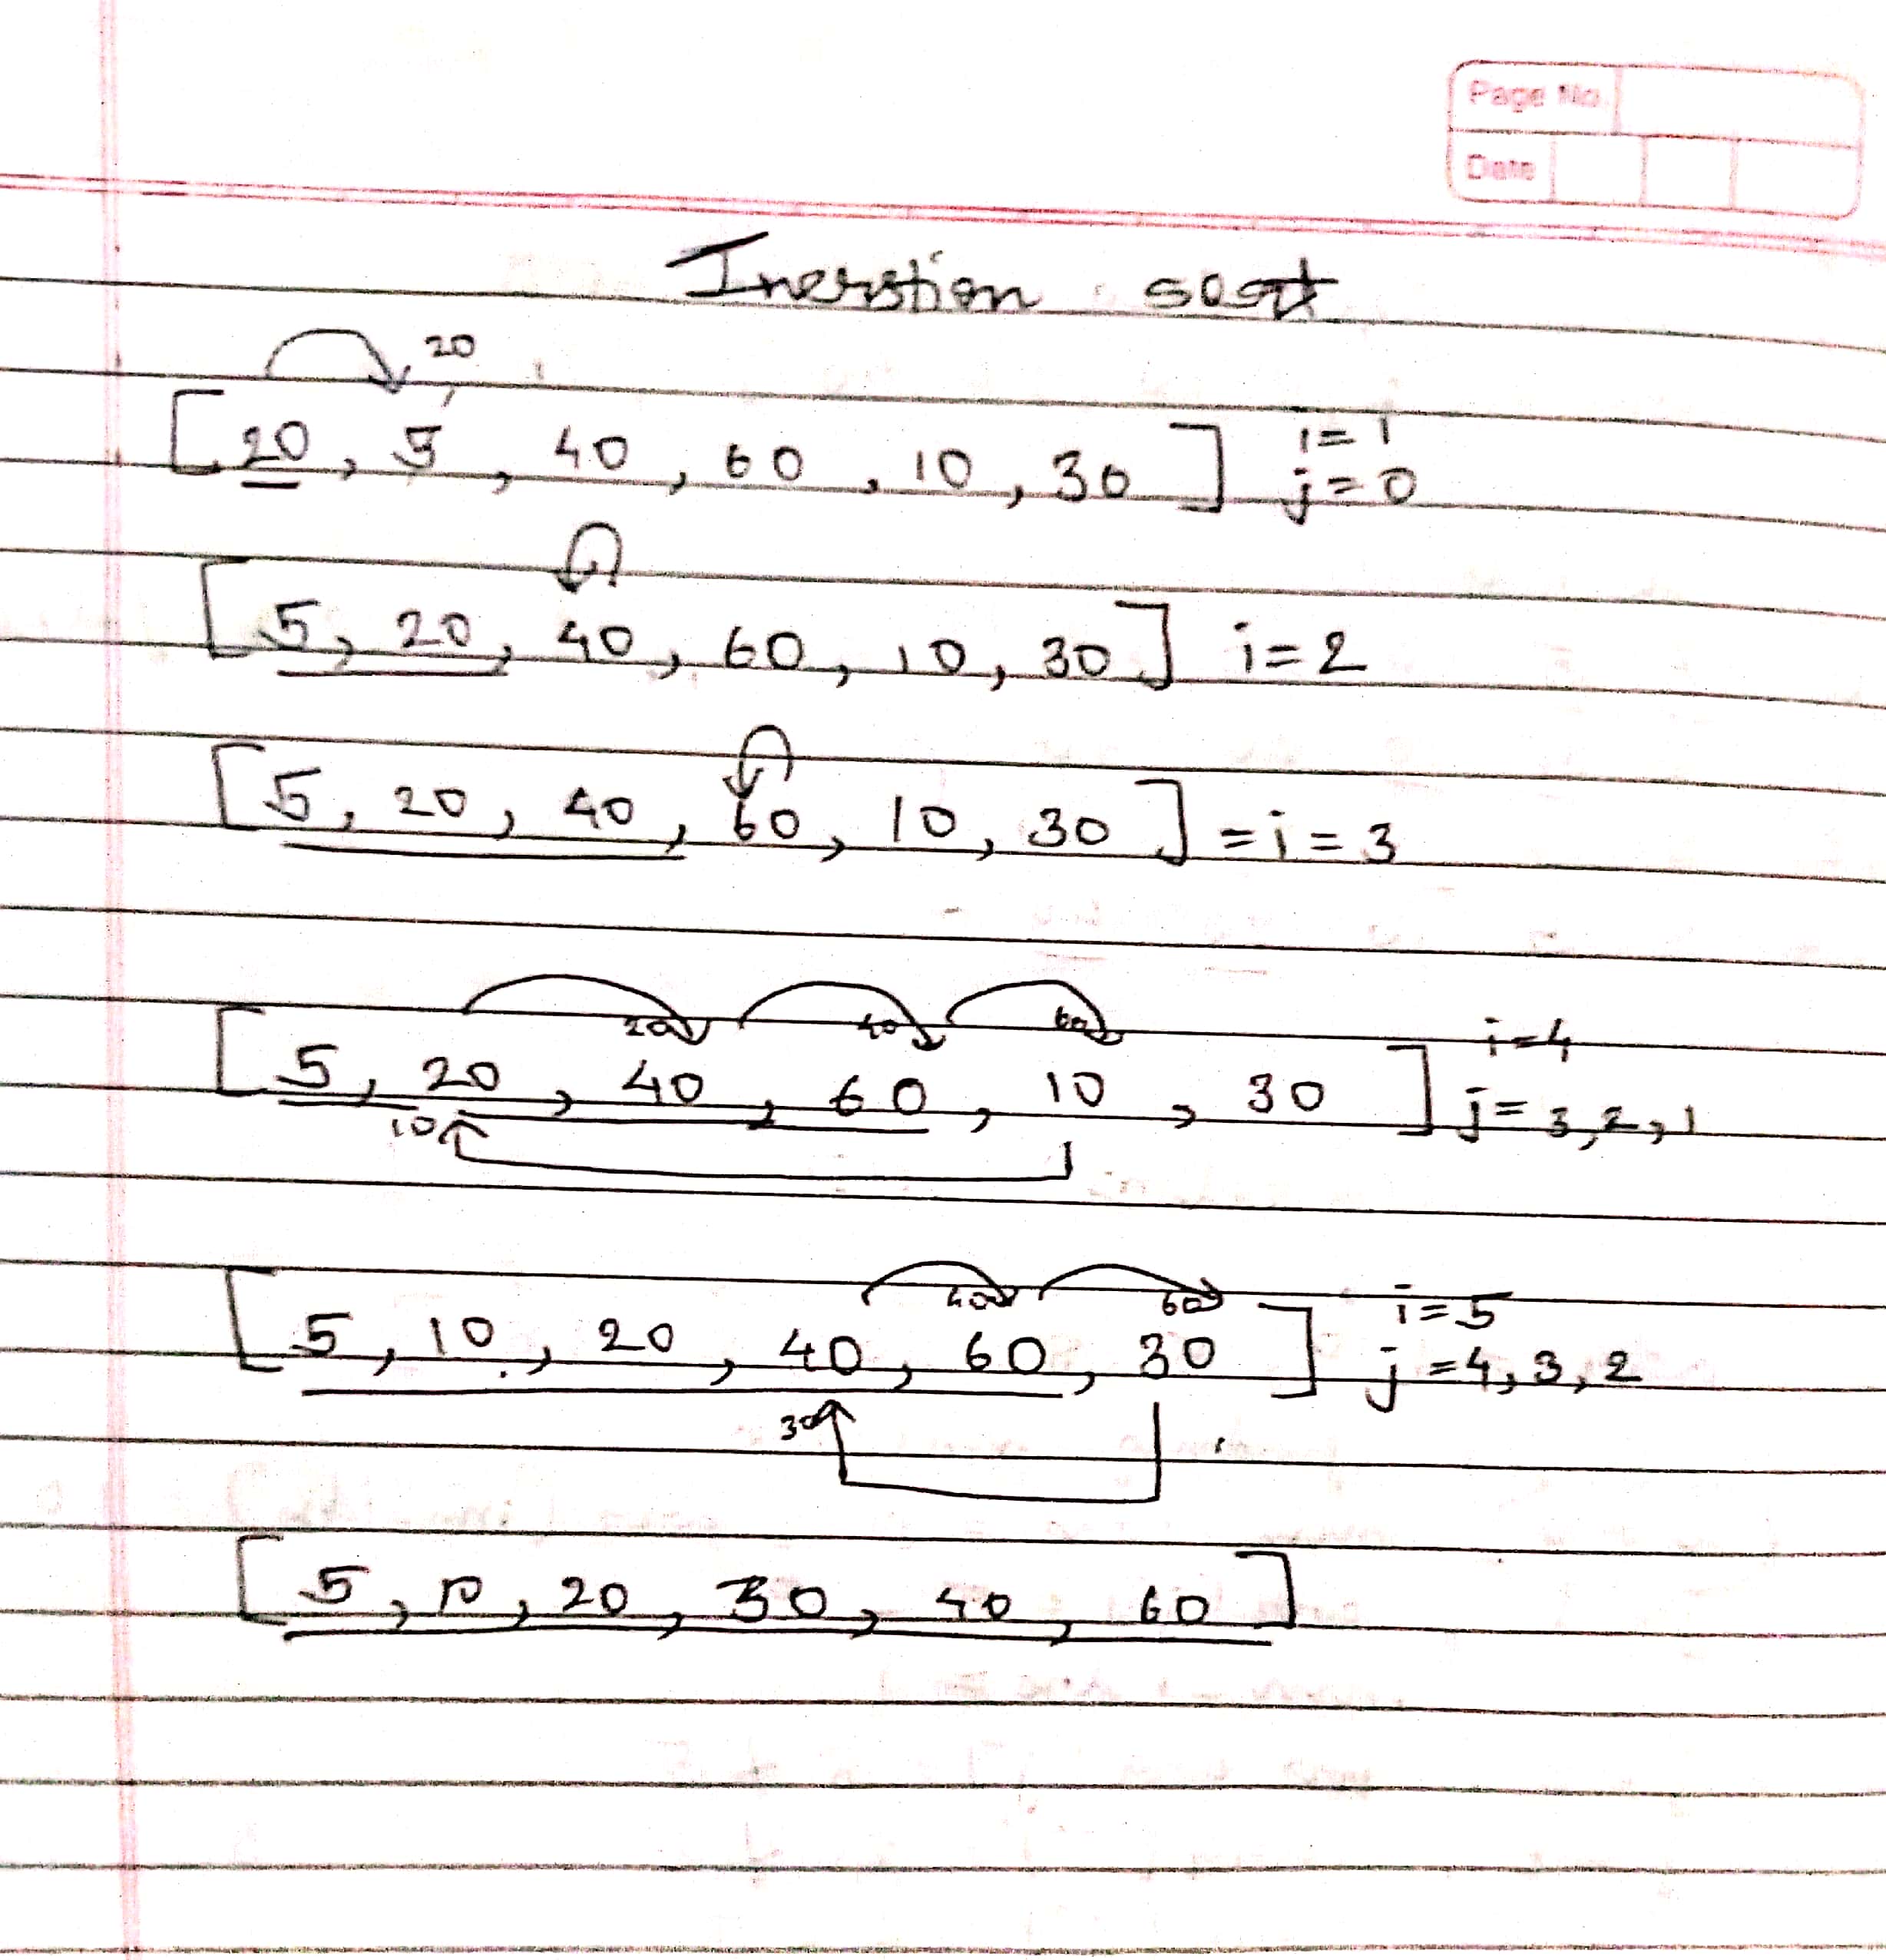 Page No.
Date
Inerstion sort
20
[20, 5, 40, 60, 10, 30] i=1
j=0
[5, 20, 40, 60, 10, 30] i=2
[5, 20, 40, 60, 10, 30] = i = 3
20 40 60
[5, 20, 40, 60, 10, 30] i=4
j= 3,2,1
10
40 60
[5, 10, 20, 40, 60, 30] i=5
j=4,3,2
30
[5, 10, 20, 30, 40, 60]